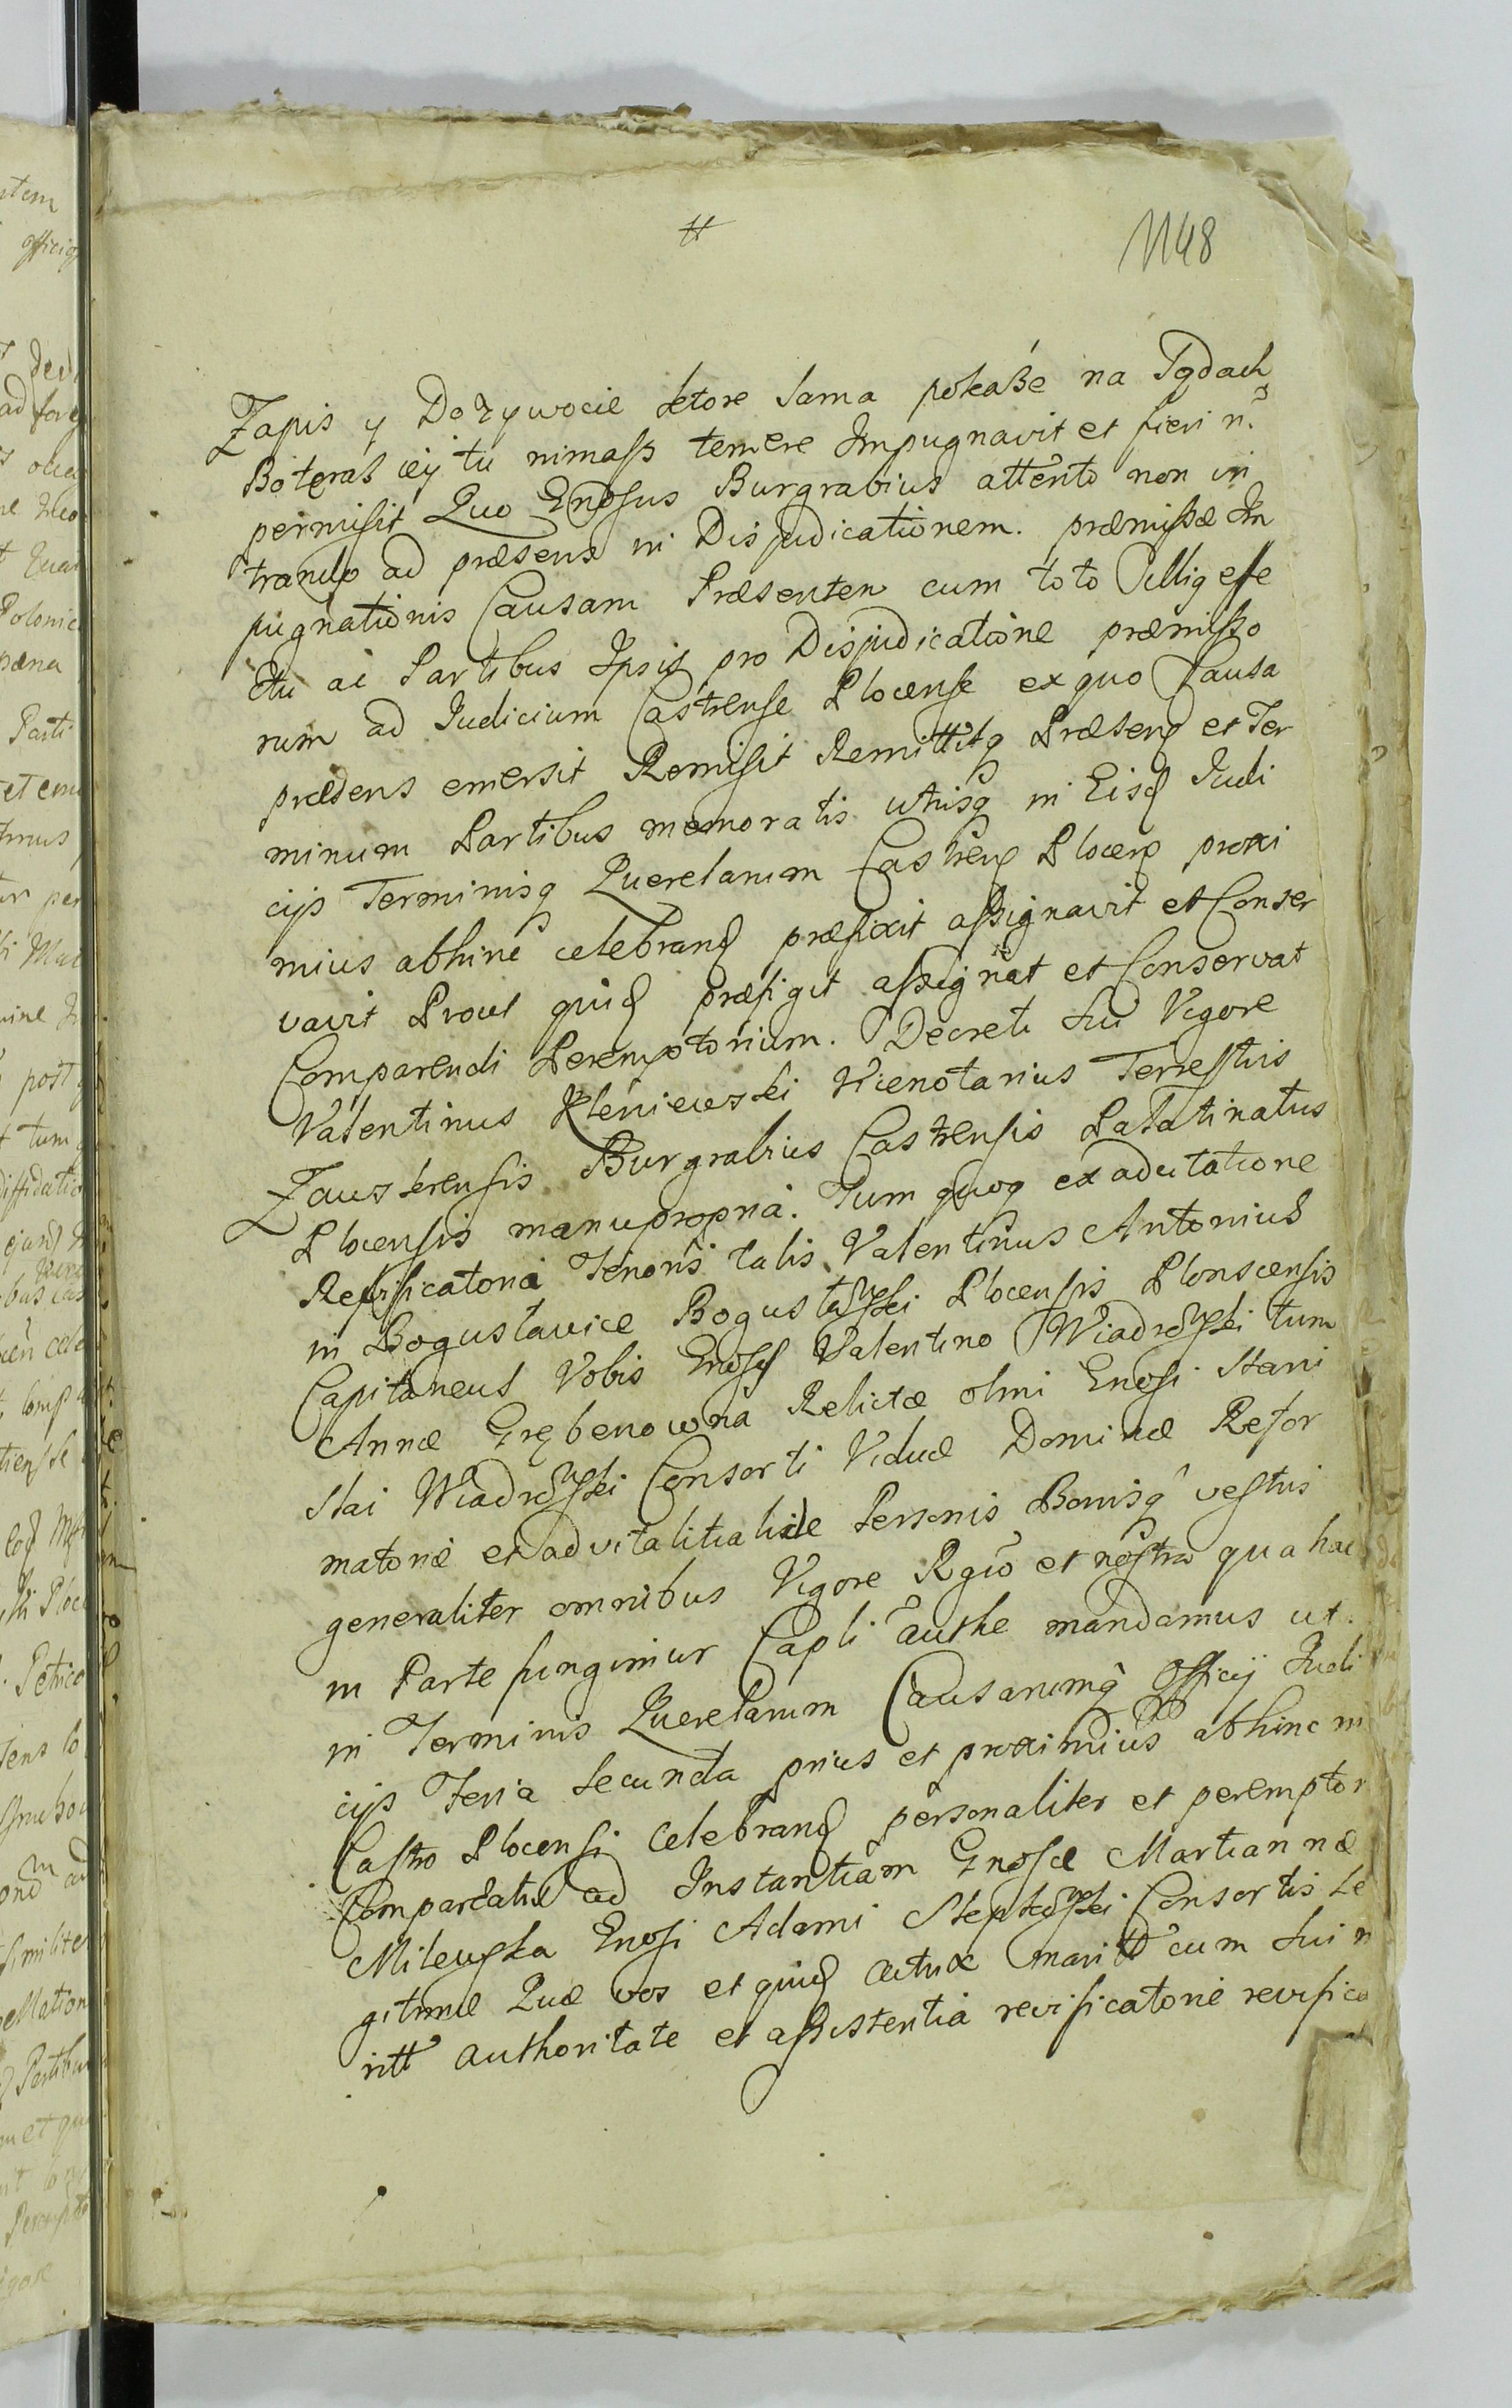 #
1148
Zapis y Dozywocie ktore sama pokaże na Sądach
Bo teras iey tu nimasz temere Impugnavit et fieri n.
permisit Quo Gnosus Burgrabius attento non in
trando ad præsens in Disjudicationem. præmissæ Im
pugnationis Causam Præsentem cum toto Illig effe
ctu ac Partibus Ipsis pro Disjudicatione præmisso
rum ad Iudicium Castrense Plocense ex quo Causa
præsens emersit Remisit Remittitq Præsens et Ter
minum Partibus memoratis utrisq in Eisd Iudi
cijs Terminisq Querelarum Castrens Plocens proxi
mius abhinc celebrand præfixit assignavit et Conser
vavit Prout quid præfigit assignat et Conservat
Comparendi Peremptorium. Decreti sui Vigore
Valentinus Kleniewski Vicenotarius Terrestris
Zawskrensis Burgrabius Castrensis Palatinatus
Plocensis manupropria. Tum quoq ex adcitatione
Revificatoria Tenoris talis Valentinus Antonius
in Bogusławice Bogusławski Plocensis Plonscensis
Capitaneus Vobis Gnosis Valentino Wiadrowski tum
Annæ Grębenowna Relictæ olmi Gnosi Stani
slai Wiadrowski Consorti Viduæ Dominæ Refor
matoriæ et advitalitiali de Personis Bonisq vestris
generaliter omnibus Vigore Rgio et nostra qua hac
in Parte fungimur Capli authe mandamus ut
in Terminis Querelarum Causarumq Officij Iudi
cijs Feria secunda prius et proximius abhinc in
Castro Plocensi celebrand personaliter et peremptor
Compareatis ad Instantiam Gnosæ Mariannæ
Milewska Gnosi Adami Stepkowski Consortis Le
gitimæ Quæ vos et quid actrix maritt cum sui m
ritt authoritate et assistentia revificatorie revifica